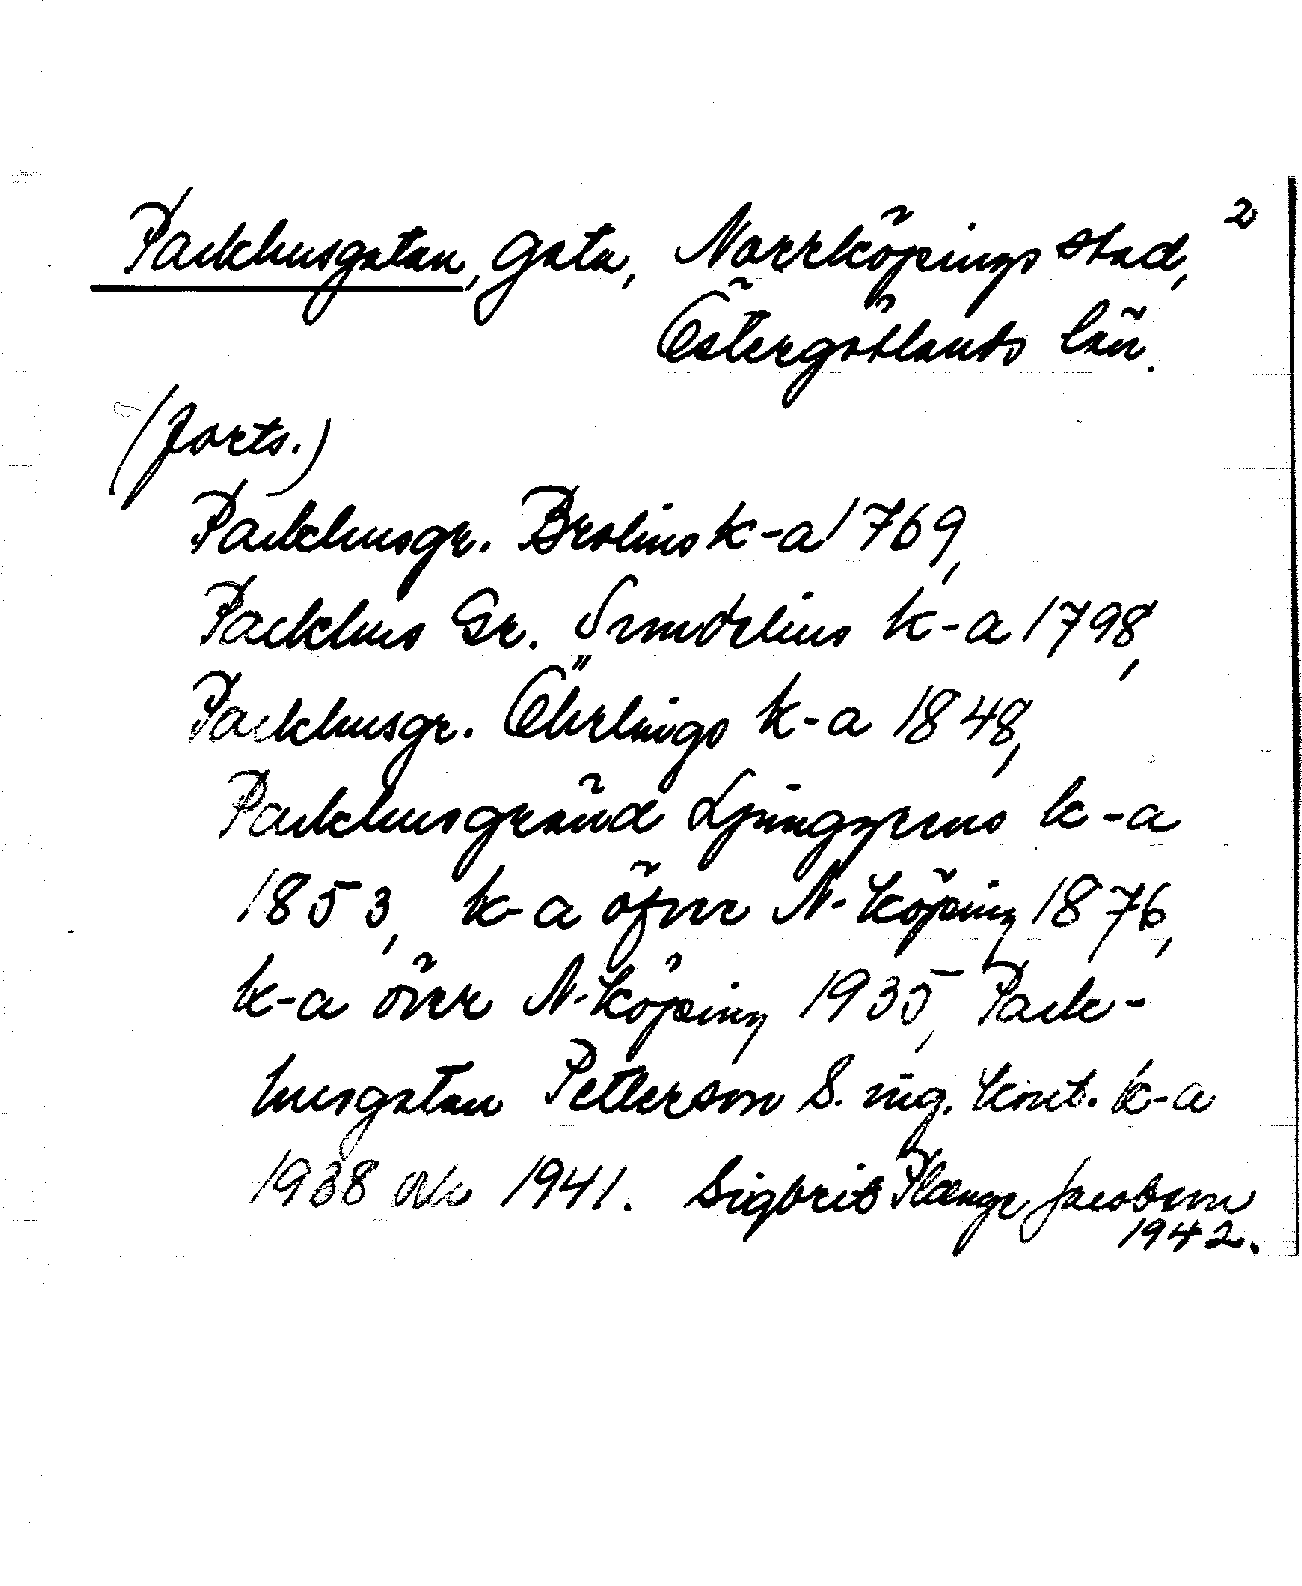 Packhusgatan, gata, Norrköpings stad, 2
Östergötlands län.
(forts.)
Packhusgr. Brolins k-a 1769,
Packhus Gr. Sundelius k-a 1798,
Packhusgr. Öhrlings k-a 1848,
Packhusgränd Ljunggrens k-a
1853, k-a öfver N-köping 1876,
k-a över N-köping 1935, Pack-
husgatan Petterson S. ing. kont. k-a
1938 och 1941. Sigbrit Plænge Jacobson
1942.